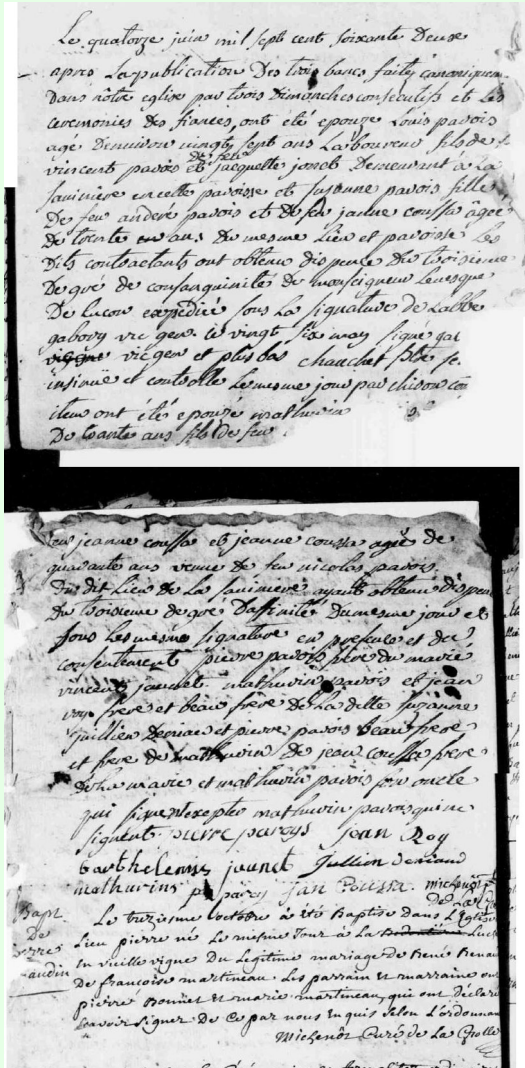 Le quatorze juin mil sept cent soixante Deuxe
apres La publication Des trois bancs faites canoniquem
Dans nôtre eglise par trois Dimanches consecutifs et Les
ceremonies des fiances, ont été epouze Louis pavois
agé Denviron vingt sept ans Laboureur fils de
vincent pavois et de feue jacquette jonet Demeurant à La
saviniere en cette paroisse et suzanne pavois fille
De feu andere pavois et de feu janne coussa agée
de trente ans Du mesme Lieu et paroisse Les
Dits contractants ont obtenu dispence du troisieme
Degré de consanguinité de monseigneur Leveque
De Lucon expedié sous La signature de Labbe
gabory vic gen. le vingt six may signé gal
vic gen et plus bas chauchet
insinué et controlle Le mesme jour par chison
item ont été epouzé mathurin
De trante ans fils de feu
jeanne coussa et jeanne coussa agée de
quarante ans veuve de feu nicolas pavois
Du dit Lieu de La saviniere ayant obtenu dispen
Du troisieme degré Daffinité Du mesme jour et
sous Les mesme signature en presence et du
consentement pierre pavois frere du marié
vincent jaunet mathurin pavois et jean
roy frere et beau frere de La ditte suzanne
jullien deniau et pierre pavois beau frere
et frere de mathurin de jean coussa frere
De La mariee et mathurin pavois son oncle
qui signent excepté mathurin pavois qui ne
signent. pierre paroys jean Roy
barthelemis jaunet Jullien deniaud
mathurins paroy Jan Coussa. michenôt
de La
Bapt
De
pierre
Le treziesme octobre a été Baptise dans L'Eglise
Lieu pierre né Le mesme Jour à La
en vieille vigne Du Legitime mariage de René Renau
De francoise martineau. Les parrain et marraine ont
pierre Bonnet et marie martineau, qui ont déclaré
scavoir signer De ce par nous Enquis selon L'ordonnan
Michenôt Curé de La Grolle